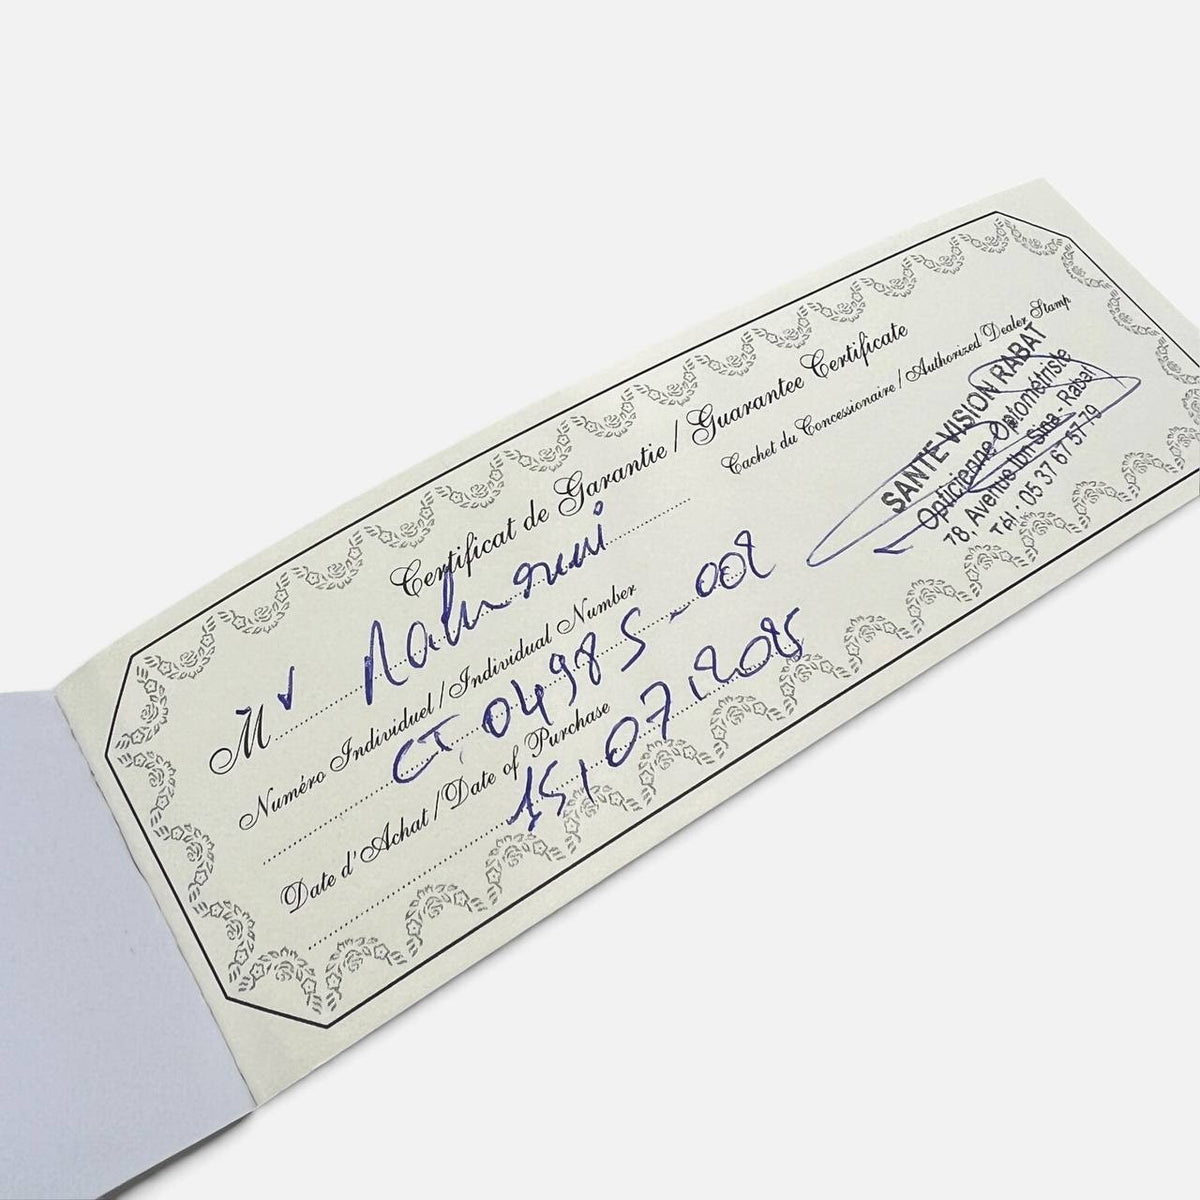 Certificat de Garantie / Guarantee Certificate
Mr Rahmani
Numéro Individuel / Individual Number
CT 04985-008
Date d'Achat / Date of Purchase
15/07/2025
Cachet du Concessionaire / Authorized Dealer Stamp
SANTE VISION RABAT
Opticienne Optométriste
78, Avenue Ibn Sina - Rabat
Tél : 05 37 67 57 79